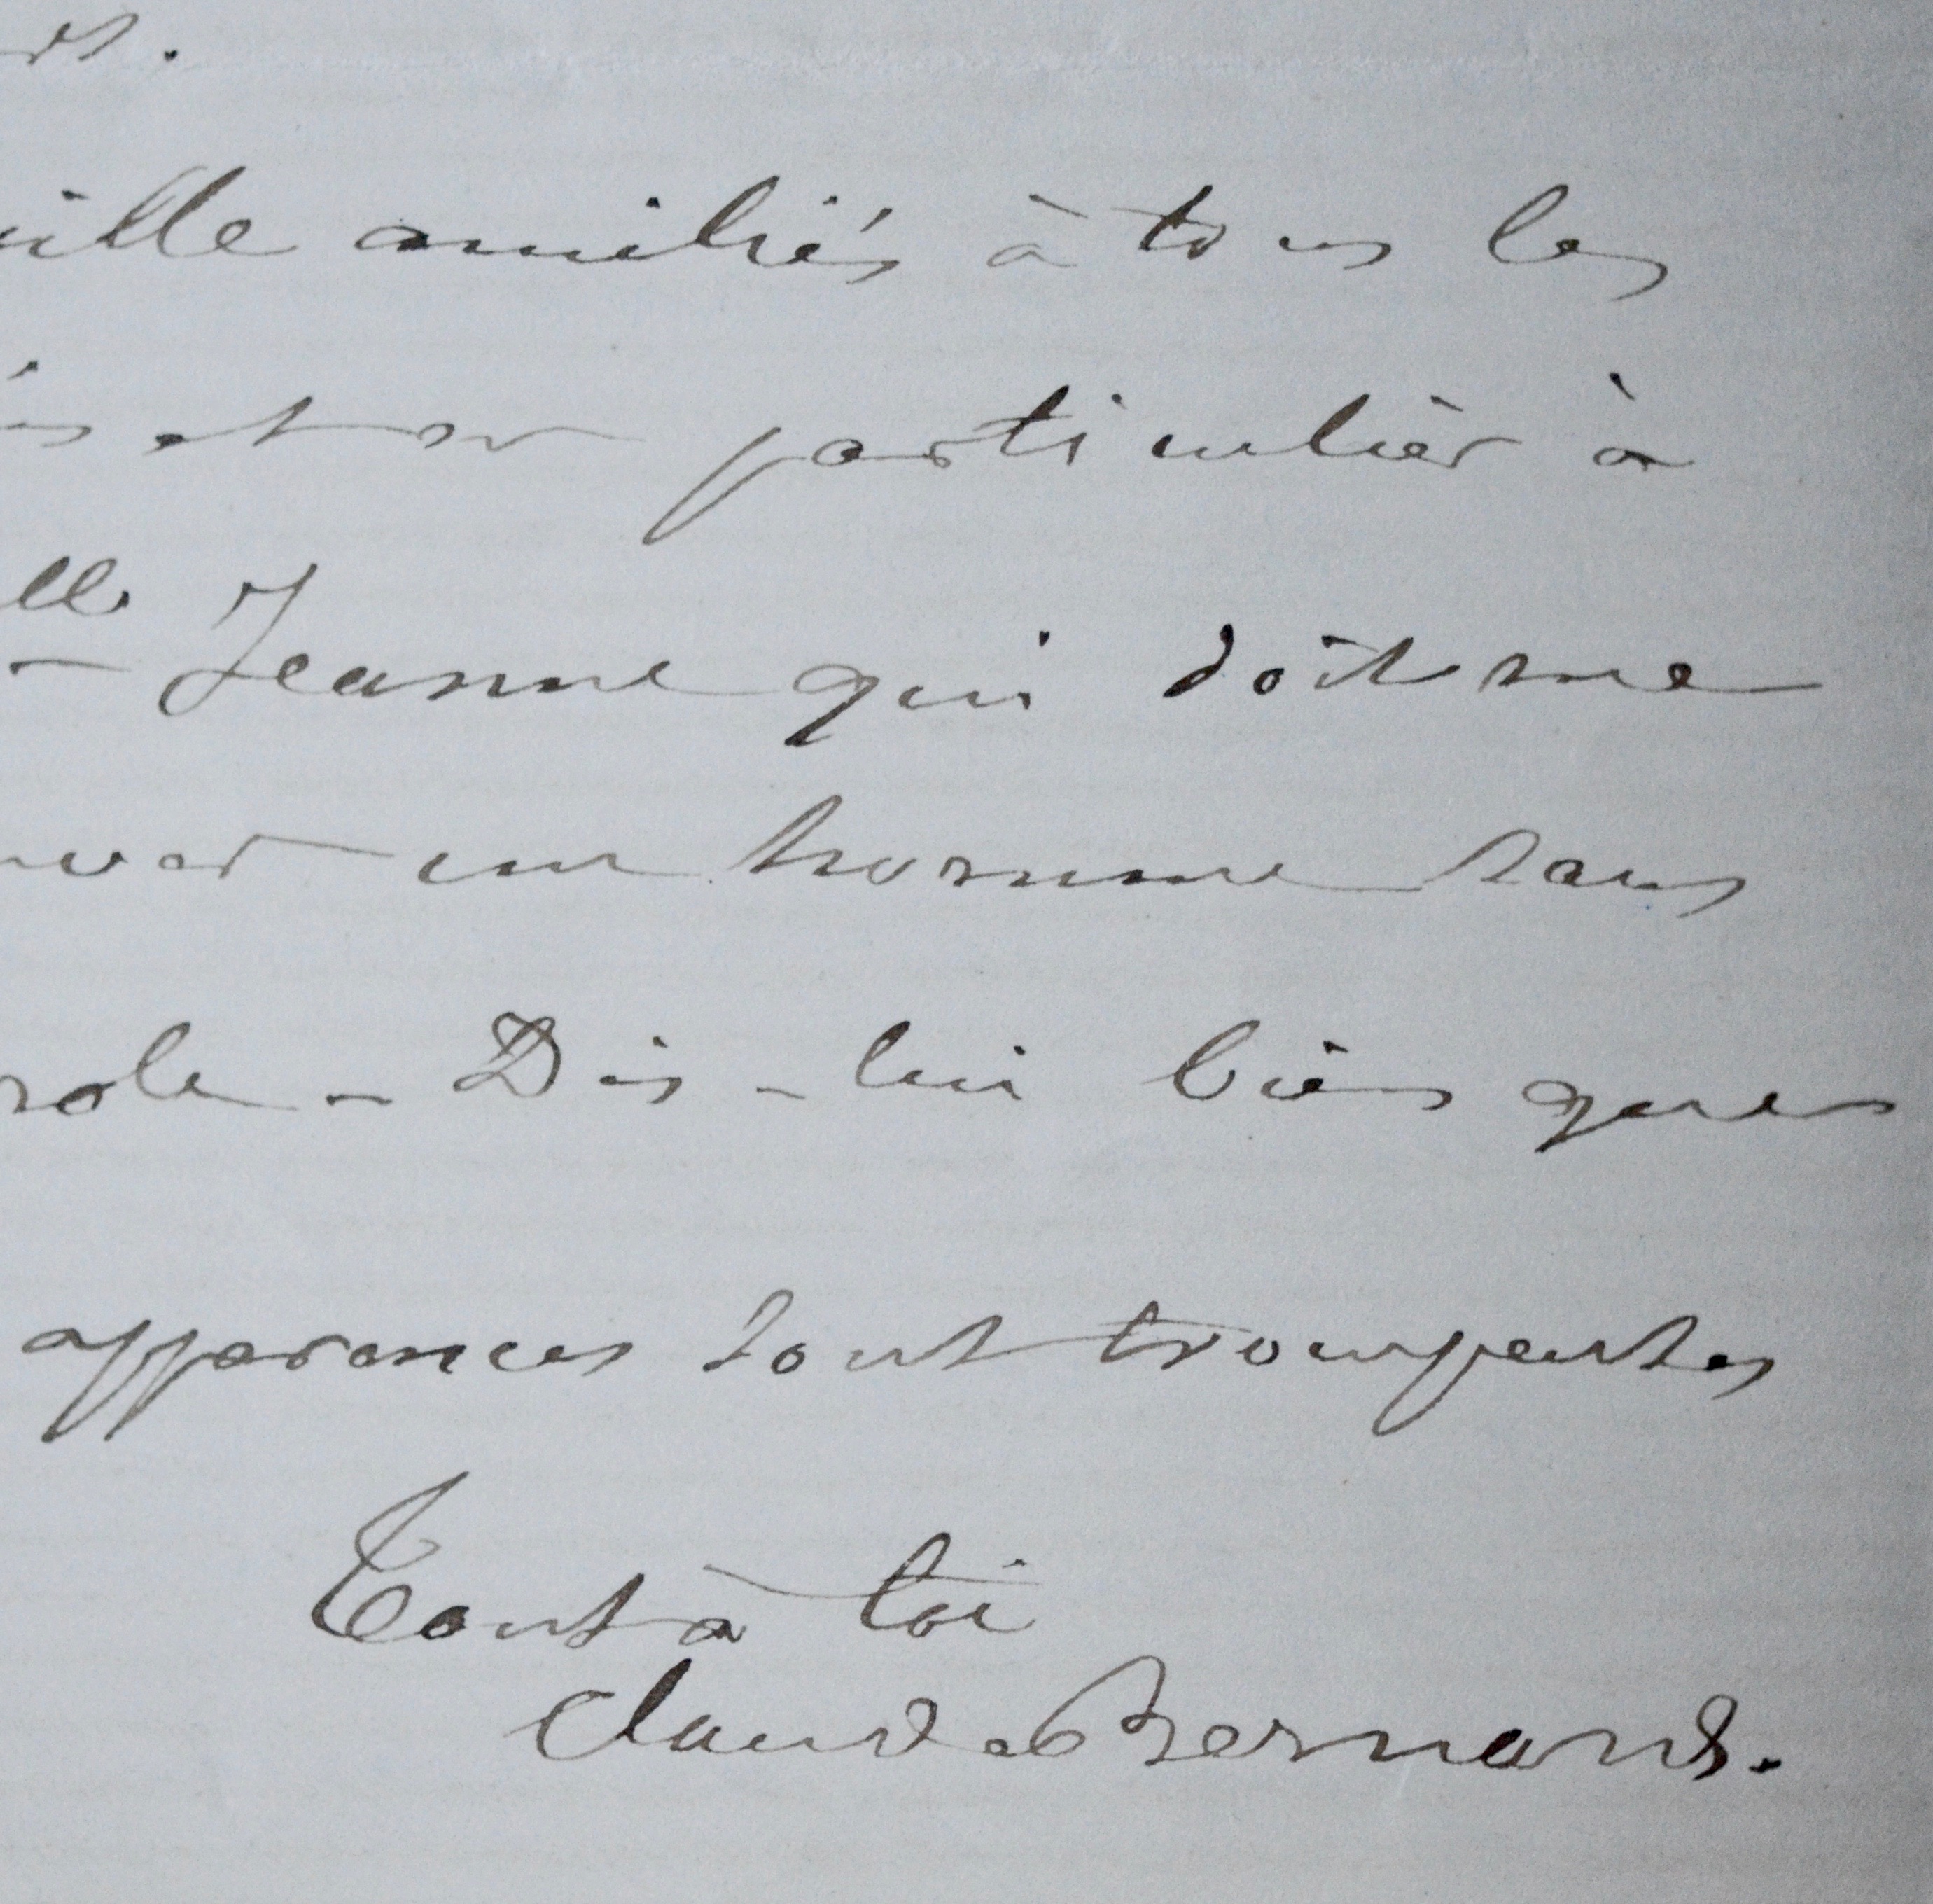 ille amitiés à tous les
et en particulier à
lle Jeanne qui doit me
uver un homme sans
role - Dis-lui bien que
apparences sont trompeuses
Tout à toi
Claude Bernard.